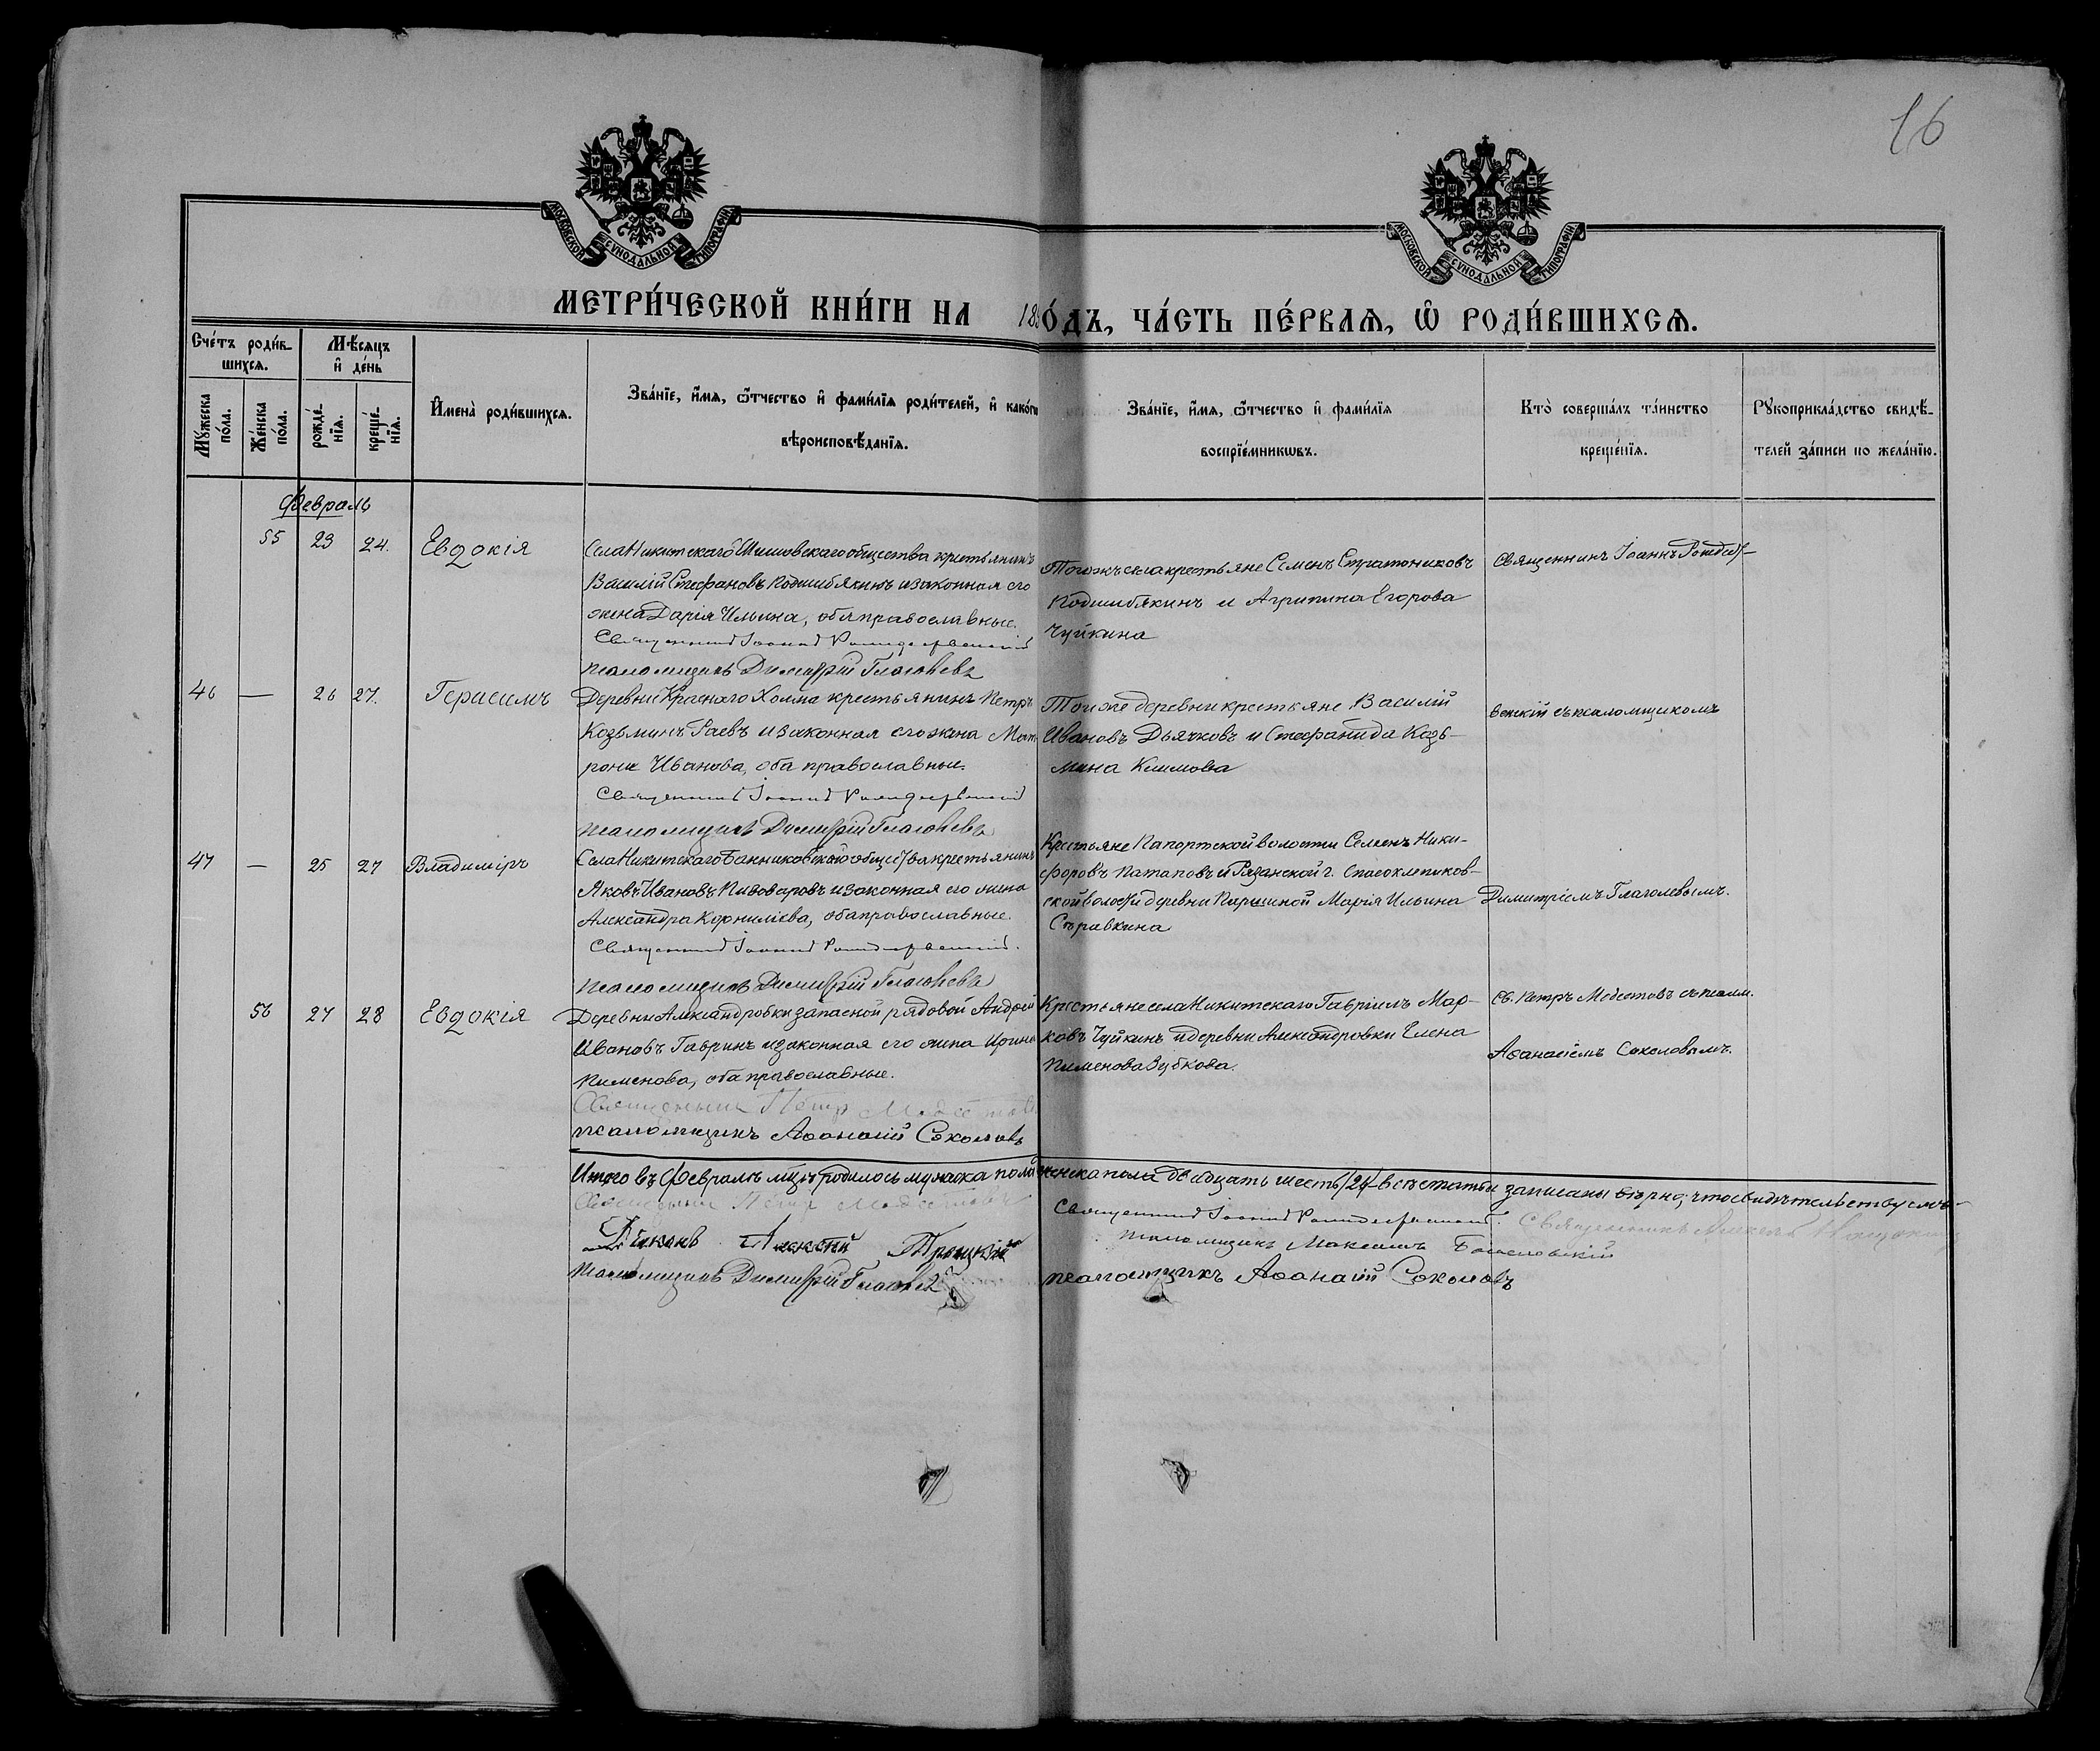 16
МОСКОВСКОЙ СѴНОДАЛЬНОЙ ТИПОГРАФІИ
МОСКОВСКОЙ СѴНОДАЛЬНОЙ ТИПОГРАФІИ
МЕТРИ́ЧЕСКОЙ КНИ́ГИ НА 18 О́ДЪ, ЧА́СТЬ ПЕ́РВАѦ, Ѡ҆ РОДИ́ВШИХСѦ.
Сче́тъ роди́в-
шихсѧ.
Мѣ́сѧцъ
и҆ де́нь
Мꙋ́жеска
по́ла.
Же́нска
по́ла.
рожде́-
нїѧ.
креще́-
нїѧ.
И҆мена̀ роди́вшихсѧ.
Зва́нїе, и҆́мѧ, ѻ҆́тчество и҆ фами́лїѧ роди́телей, и҆ како́гѡ
вѣроисповѣ́данїѧ.
Зва́нїе, и҆́мѧ, ѻ҆́тчество и҆ фами́лїѧ
воспрїе́мникѡвъ.
Кто̀ соверша́лъ та́инство
креще́нїѧ.
Рꙋкоприкла́дство свидѣ́-
телей за́писи по жела́нїю.
Февраль
55 23 24. Евдокія
Села Никитскаго Шишовскаго общества крестьянинъ
Василій Стефановъ Подшибякинъ и законная его
жена Дарія Ильина, оба православные.
Священникъ Іоаннъ Рождественскій
псаломщикъ Димитрій Глаголевъ
Тогожъ села крестьяне Семенъ Стратониковъ
Подшибякинъ и Агрипина Егорова
Чуйкина
Священникъ Іоаннъ Рождест-
46 — 26 27. Герасимъ
Деревни Краснаго Холма крестьянинъ Петръ
Козьминъ Раевъ и законная его жена Мат
рона Иванова, оба православные.
Священникъ Іоаннъ Рождественскій
псаломщикъ Димитрій Глаголевъ
Той же деревни крестьяне Василій
Ивановъ Дьячковъ и Стефанида Козь-
мина Климова
венскій съ псаломщикомъ
47 — 25 27 Владиміръ
Села Никитскаго Банниковскаго общества крестьянинъ
Яковъ Ивановъ Пивоваровъ и законная его жена
Александра Корниліева, оба православные.
Священникъ Іоаннъ Рождественскій.
псаломщикъ Димитрій Глаголевъ
Крестьяне Папортской волости Семенъ Ники-
форовъ Потаповъ и Рязанской г. Спасоклепиков-
ской волости деревни Маріія Ильина
Димитріемъ Глаголевымъ.
56 27 28 Евдокія
Деревни Александровки запасной рядовой Андрей
Ивановъ Гавринъ и законная его жена Ирина
Пименова, оба православные.
Священникъ Петръ Модестовъ
псаломщикъ Аѳанасій Соколовъ
Крестьяне села Никитскаго Гавріилъ Мар-
ковъ Чуйкинъ и деревни Александровки Елена
Пименова Зубкова.
Св. Петръ Модестовъ съ псалм.
Аѳанасіемъ Соколовымъ.
Итого въ Февралѣ мцѣ родилось мужеска пола женска пола двадцать шесть /26/ всѣ статьи записаны вѣрно; что свидѣтельствуемъ.
Священникъ Петръ Модестовъ
Священникъ Іоаннъ Рождественскій. Священникъ
Діаконъ Алексѣй Троицкій
псаломщикъ Максимъ Богословскій
Псаломщикъ Димитрій Глаголев
псаломщикъ Аѳанасій Соколовъ